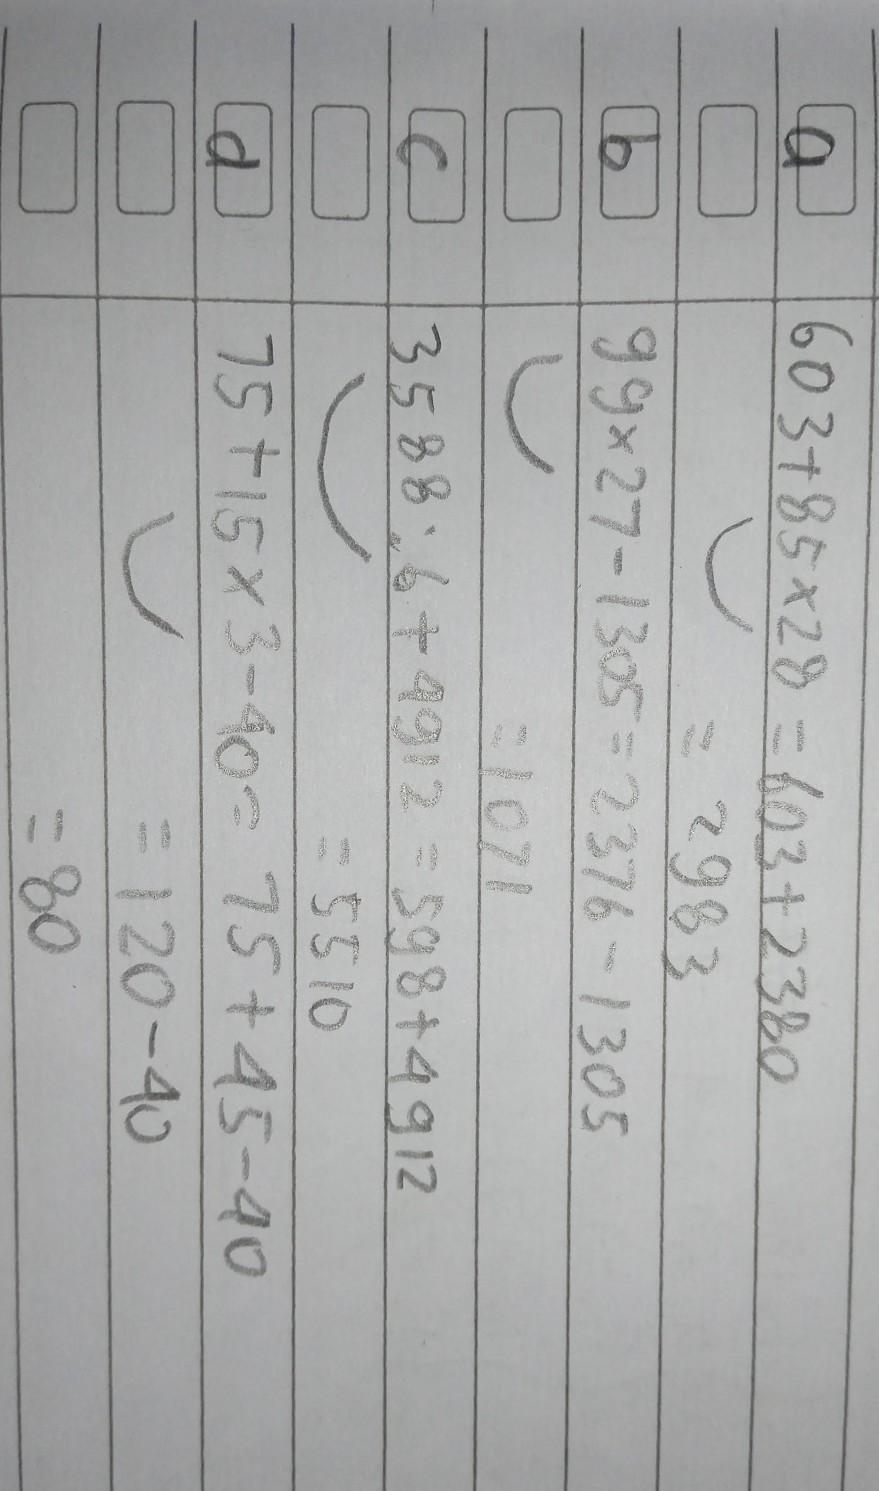 a 603+85×28 = 603+2380
= 2983
b 99×27-1305 = 2376-1305
= 1071
c 3588:6+4912 = 598+4912
= 5510
d 75+15×3-40= 75+45-40
= 120-40
= 80